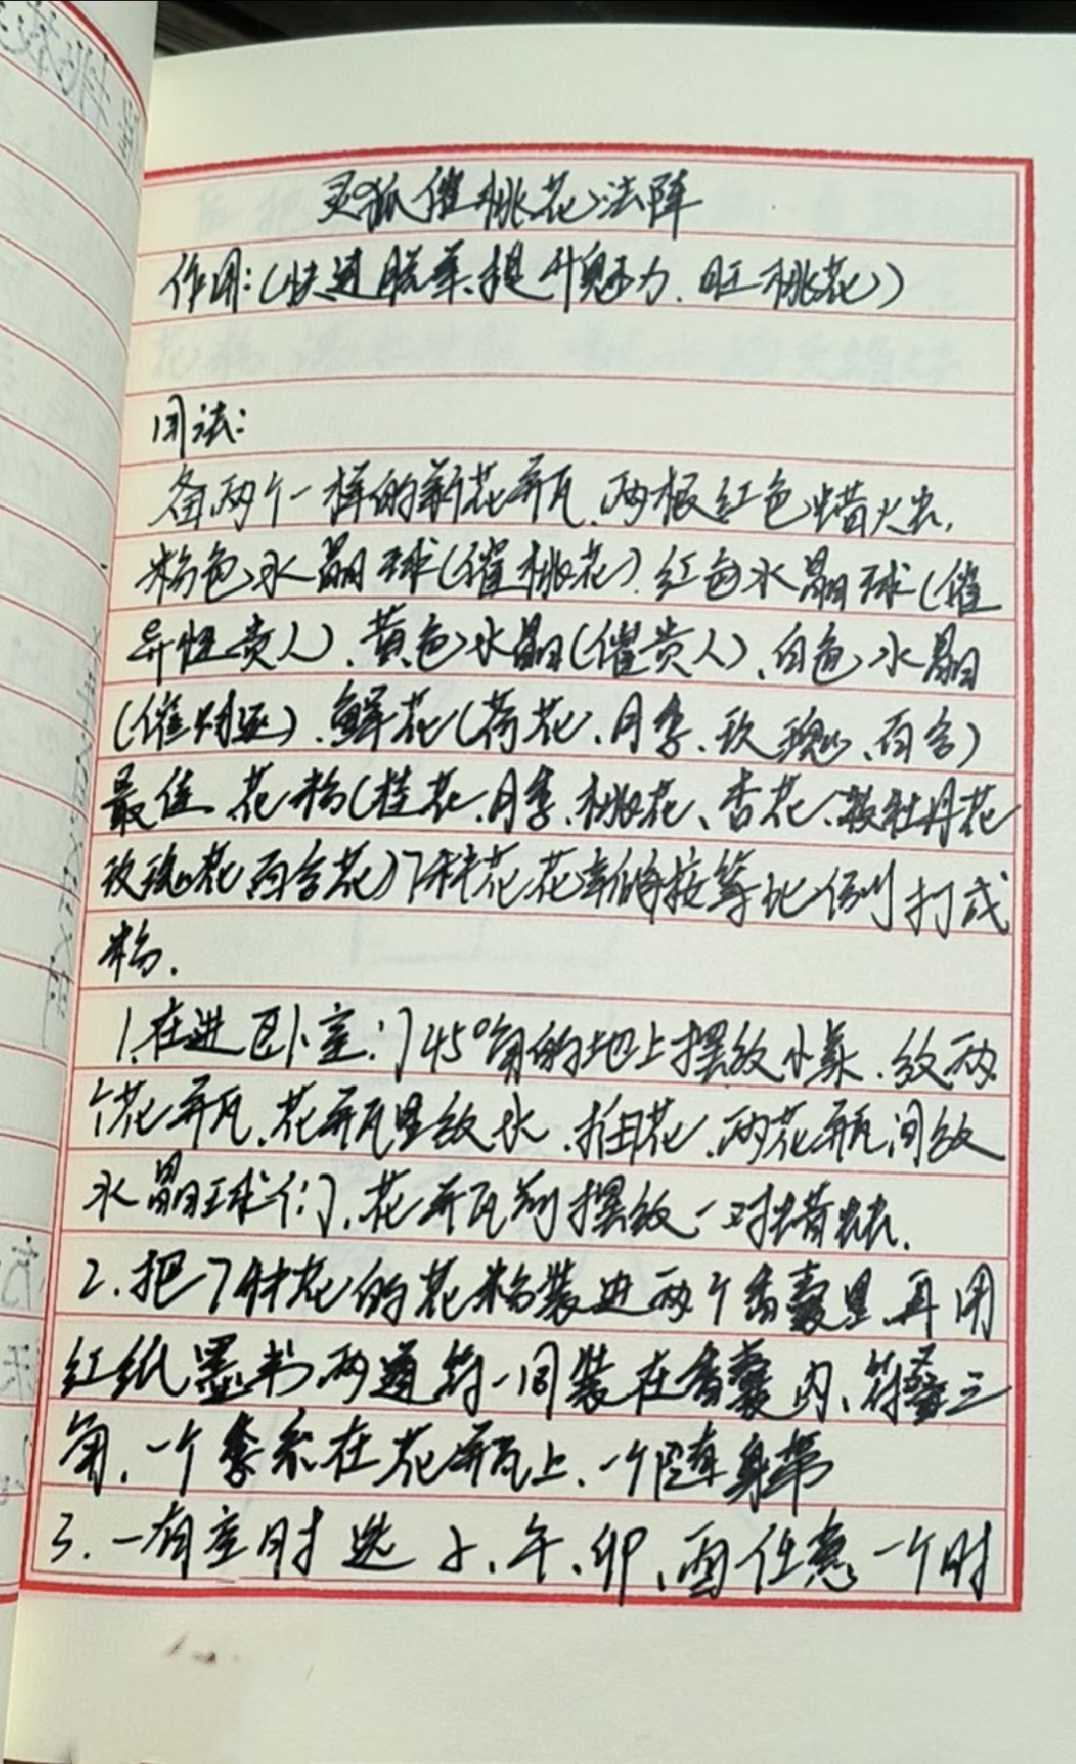 灵狐催桃花法阵
作用:(快速脱单、提升魅力、旺桃花)
用法:
备两个一样的新花瓶、两根红色蜡火虫,
粉色水晶球(催桃花)、红色水晶球(催
异性贵人)、黄色水晶(催贵人)、白色水晶
(催财运)、鲜花(荷花、月季、玫瑰、百合)
最佳、花粉(桂花、月季、桃花、杏花、牡丹花
玫瑰花百合花)7种花花按等比例打成
粉.
1.在进卧室门45°角的地上摆放小桌、放两
个花瓶、花瓶里放水、插花、两花瓶间放
水晶球们、花瓶前摆放一对蜡烛.
2.把7种花的花粉装进两个香囊里再用
红纸墨书两道符一同装在香囊内、符叠三
角、一个系在花瓶上、一个随身带
3.一有空时选子、午、卯、酉任意一个时